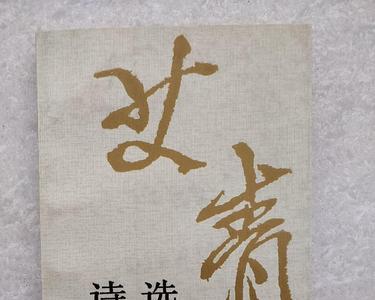 艾青
诗选